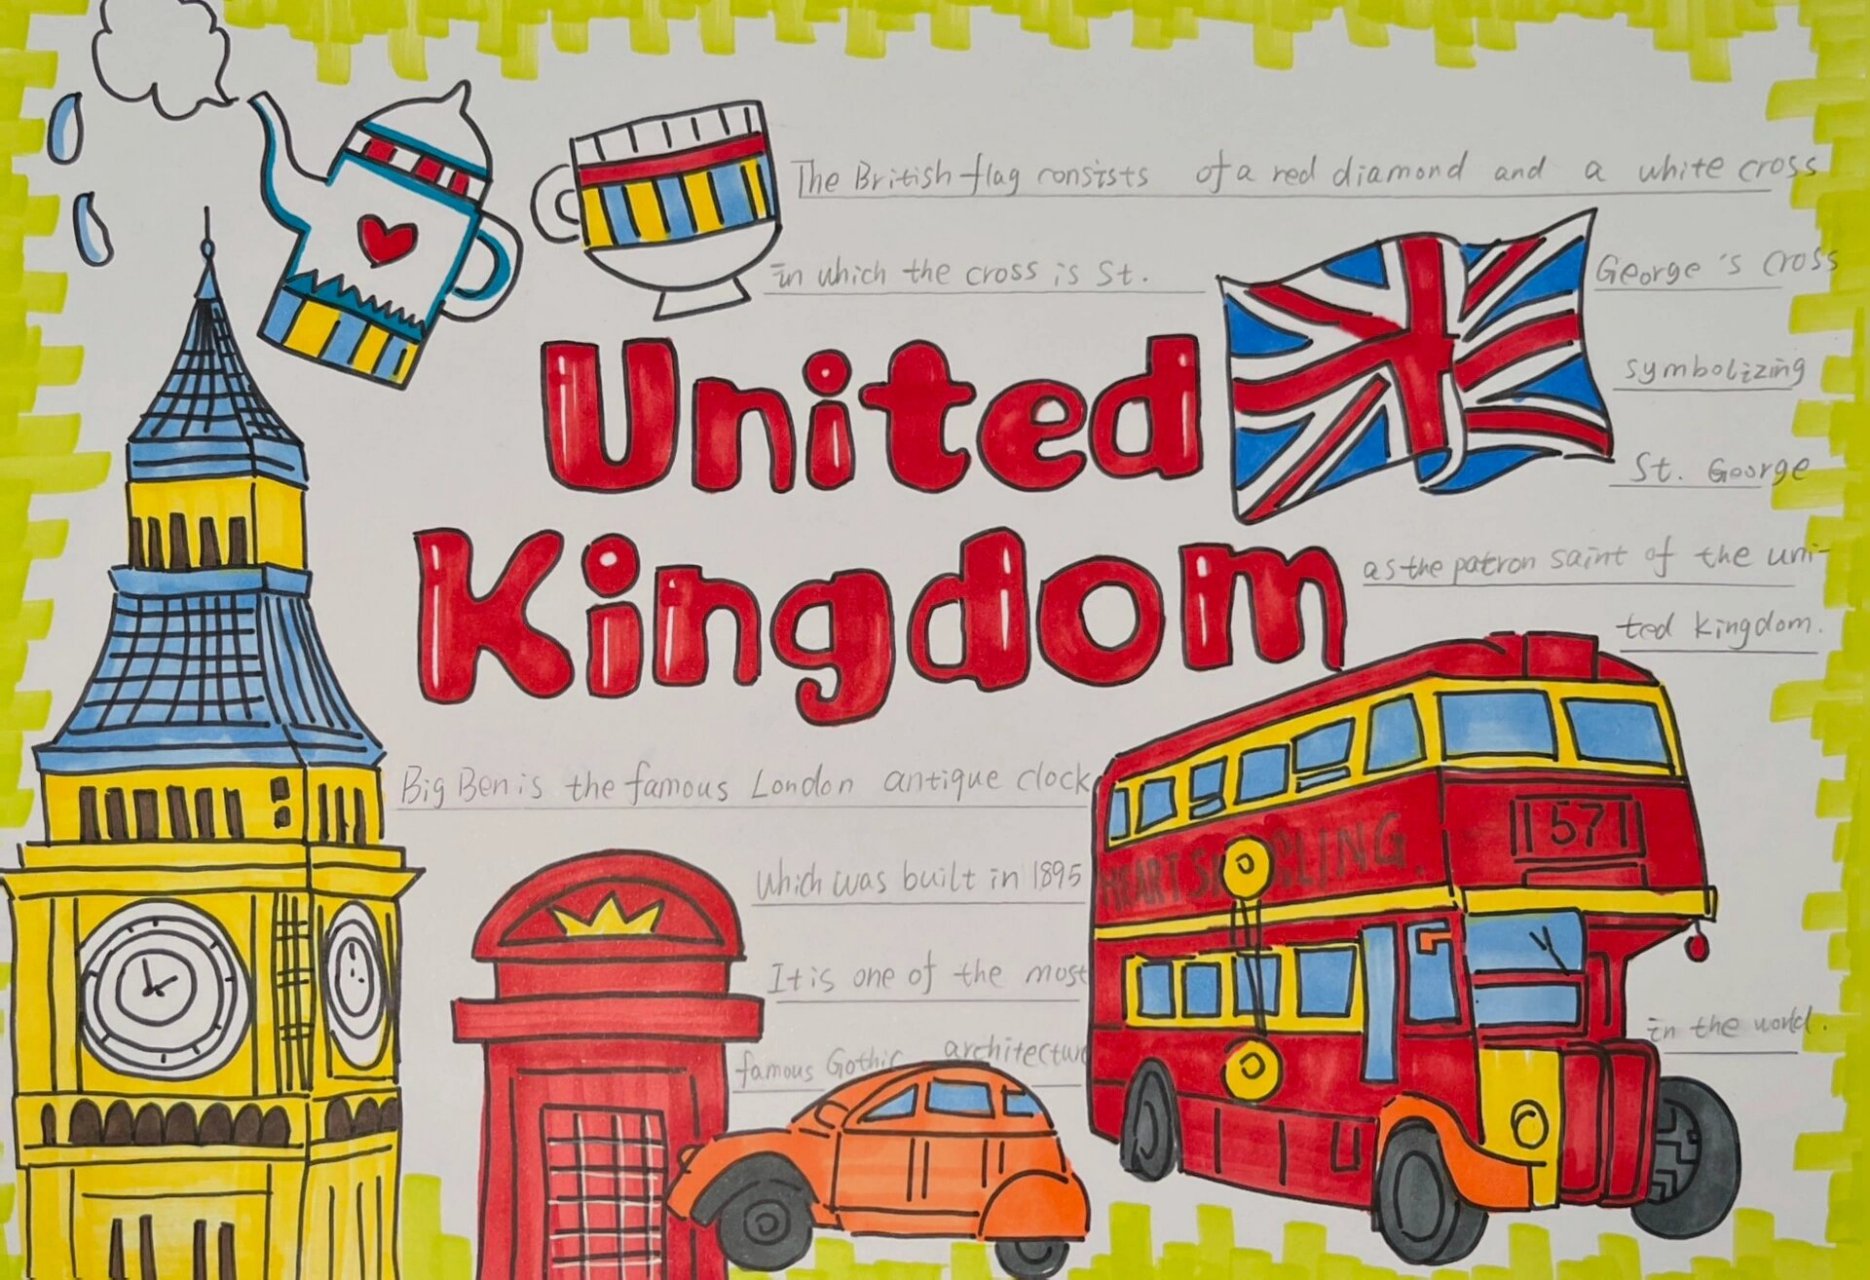 The British flag consists of a red diamond and a white cross
in which the cross is St. George's cross
symbolizing
St. George
United
Kingdom
as the patron saint of the uni-
ted kingdom.
Big Ben is the famous London antique clock
which was built in 1895
It is one of the most
famous Gothic architecture
in the world.
1571
HEART